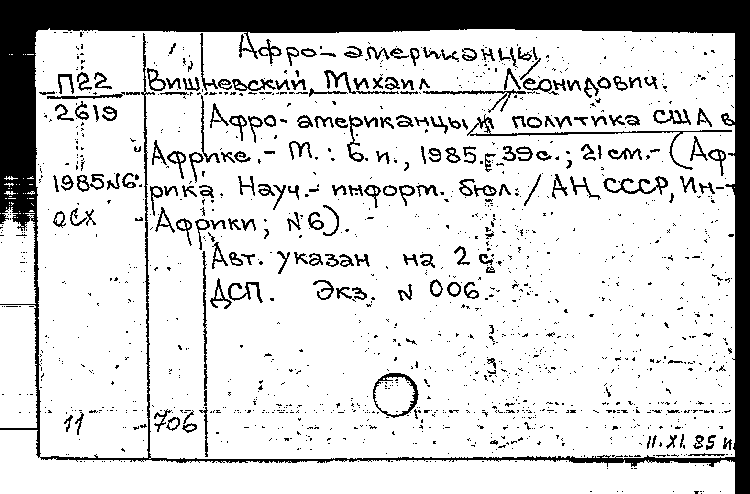 Афро-американцы
П22 Вишневский, Михаил Леонидович.
2619 Афро-американцы и политика США в
Африке.- М.: Б.и., 1985.- 39с.; 21см.- (Аф-
1985N6. рика. Науч.- информ. бюл. / АН СССР, Ин-т
ОСХ Африки; N6).
Авт. указан на 2 с.
ДСП. Экз. N 006.
11 706
11.XI.85